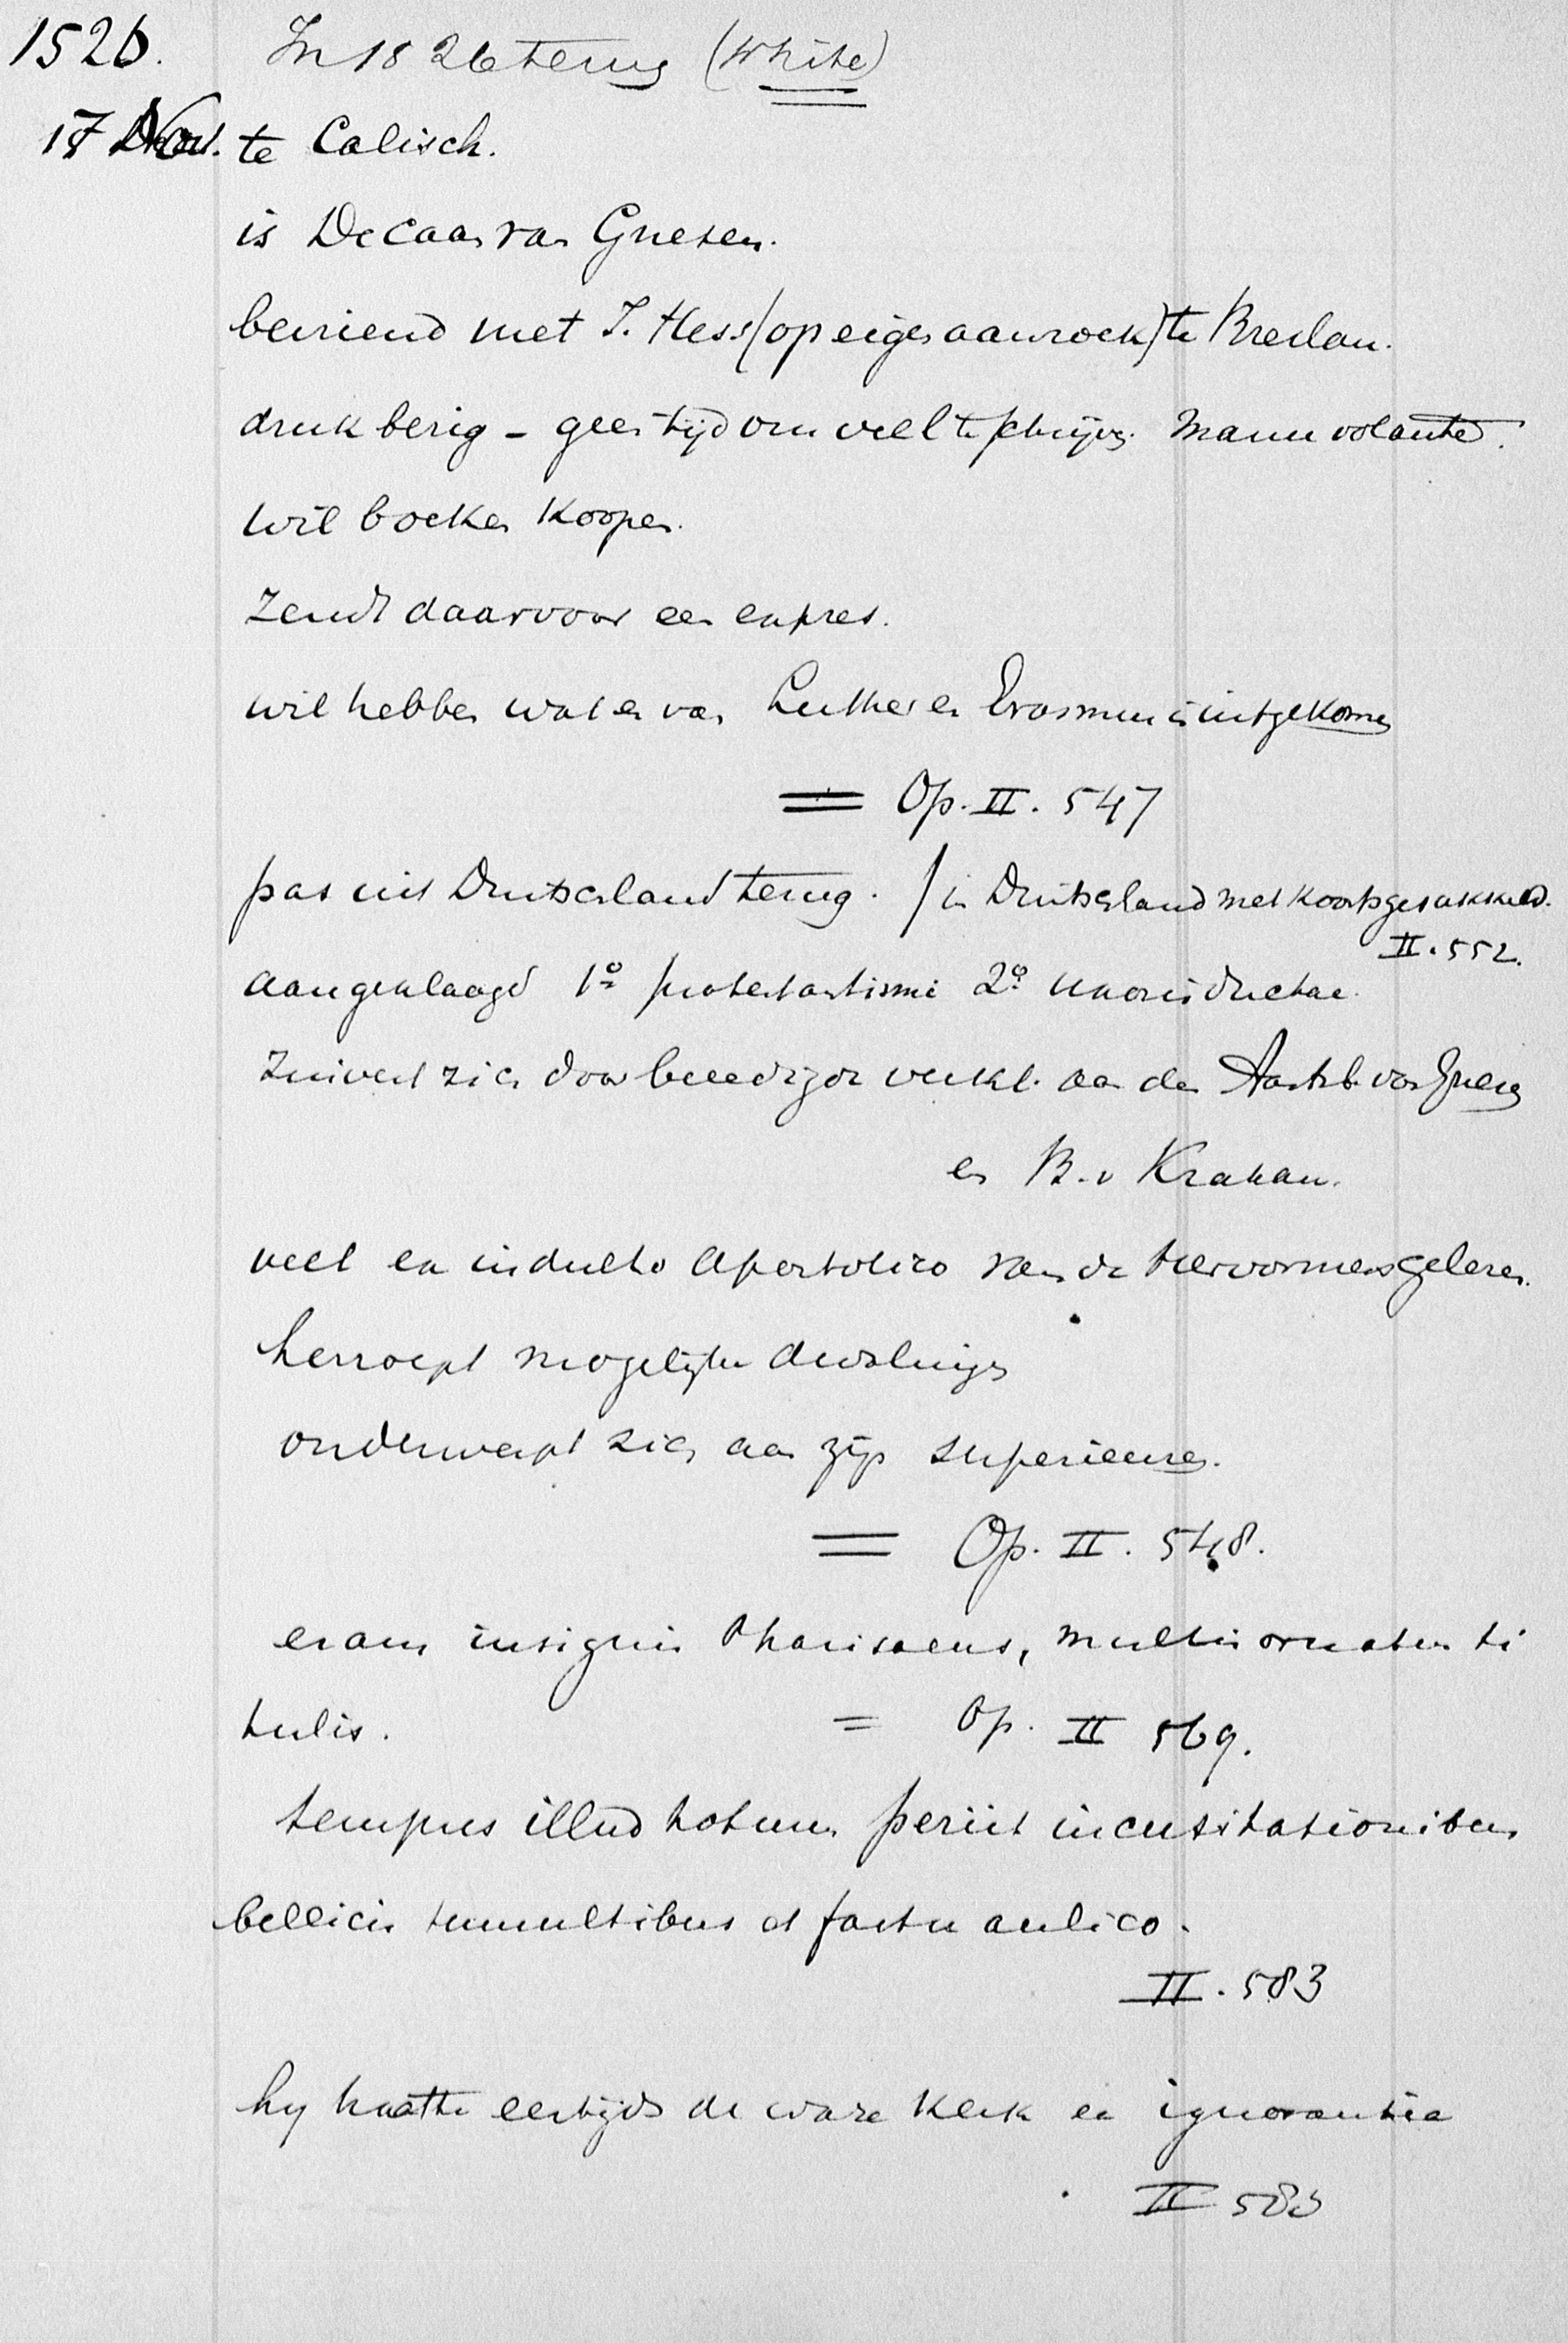 1526. In 1826 terug (White)
17 Nov. te Calisch.
is Decaan van Gnesen.
bevriend met J. Hess (op eigen aanzoek) te Breslau.
druk bezig - geen tijd om veel te schrijven. Manu volante.
Wil boeken koopen.
Zendt daarvoor een expres.
wil hebben wat er van Luther en Erasmus is uitgekomen
= Op. II. 547
pas uit Duitschland terug. / in Duitschland met koorts gesukkeld.
II. 552.
aangeklaagd 1º protestantismi 2º uxoris ductae.
Zuivert zich door beeedigde verkl. aan den Aartsb. van Gnesen
en B. v Krakau.
veel ex indulto apostolico van de hervormers gelezen.
herroept mogelijke dwalingen
onderwerpt zich aan zijn superieuren.
= Op. II. 548.
eram insignis Pharisaeus, multis ornatus ti
tulis. = Op. II 569.
tempus illud totum periit in cursitationibus
bellicis tumultibus et fastu aulico.
II. 583
hy haatte eertijds de ware Kerk ex ignorantia
II 583